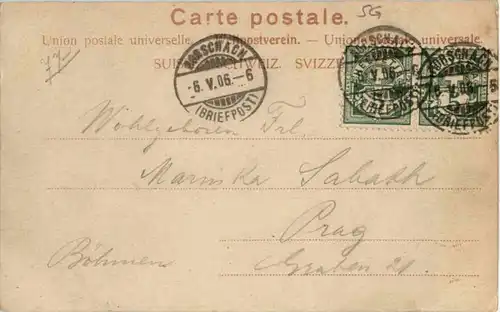 Carte postale. SG
Union postale universelle. Weltpostverein. — Unione postale universale
SUISSE. SCHWEIZ. SVIZZERA.
77
RORSCHACH
-6.V.06.-6
(BRIEFPOST)
RORSCHACH
V.06
(BRIEFPOST)
RORSCHACH
6.V.06.-6
(BRIEFPOST)
Wohlgeboren Frl.
Mariska Sabath
Prag
Böhmen Graben 21